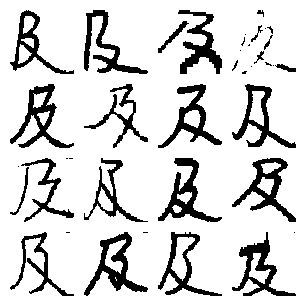 及及及及
及及及及
及及及及
及及及及